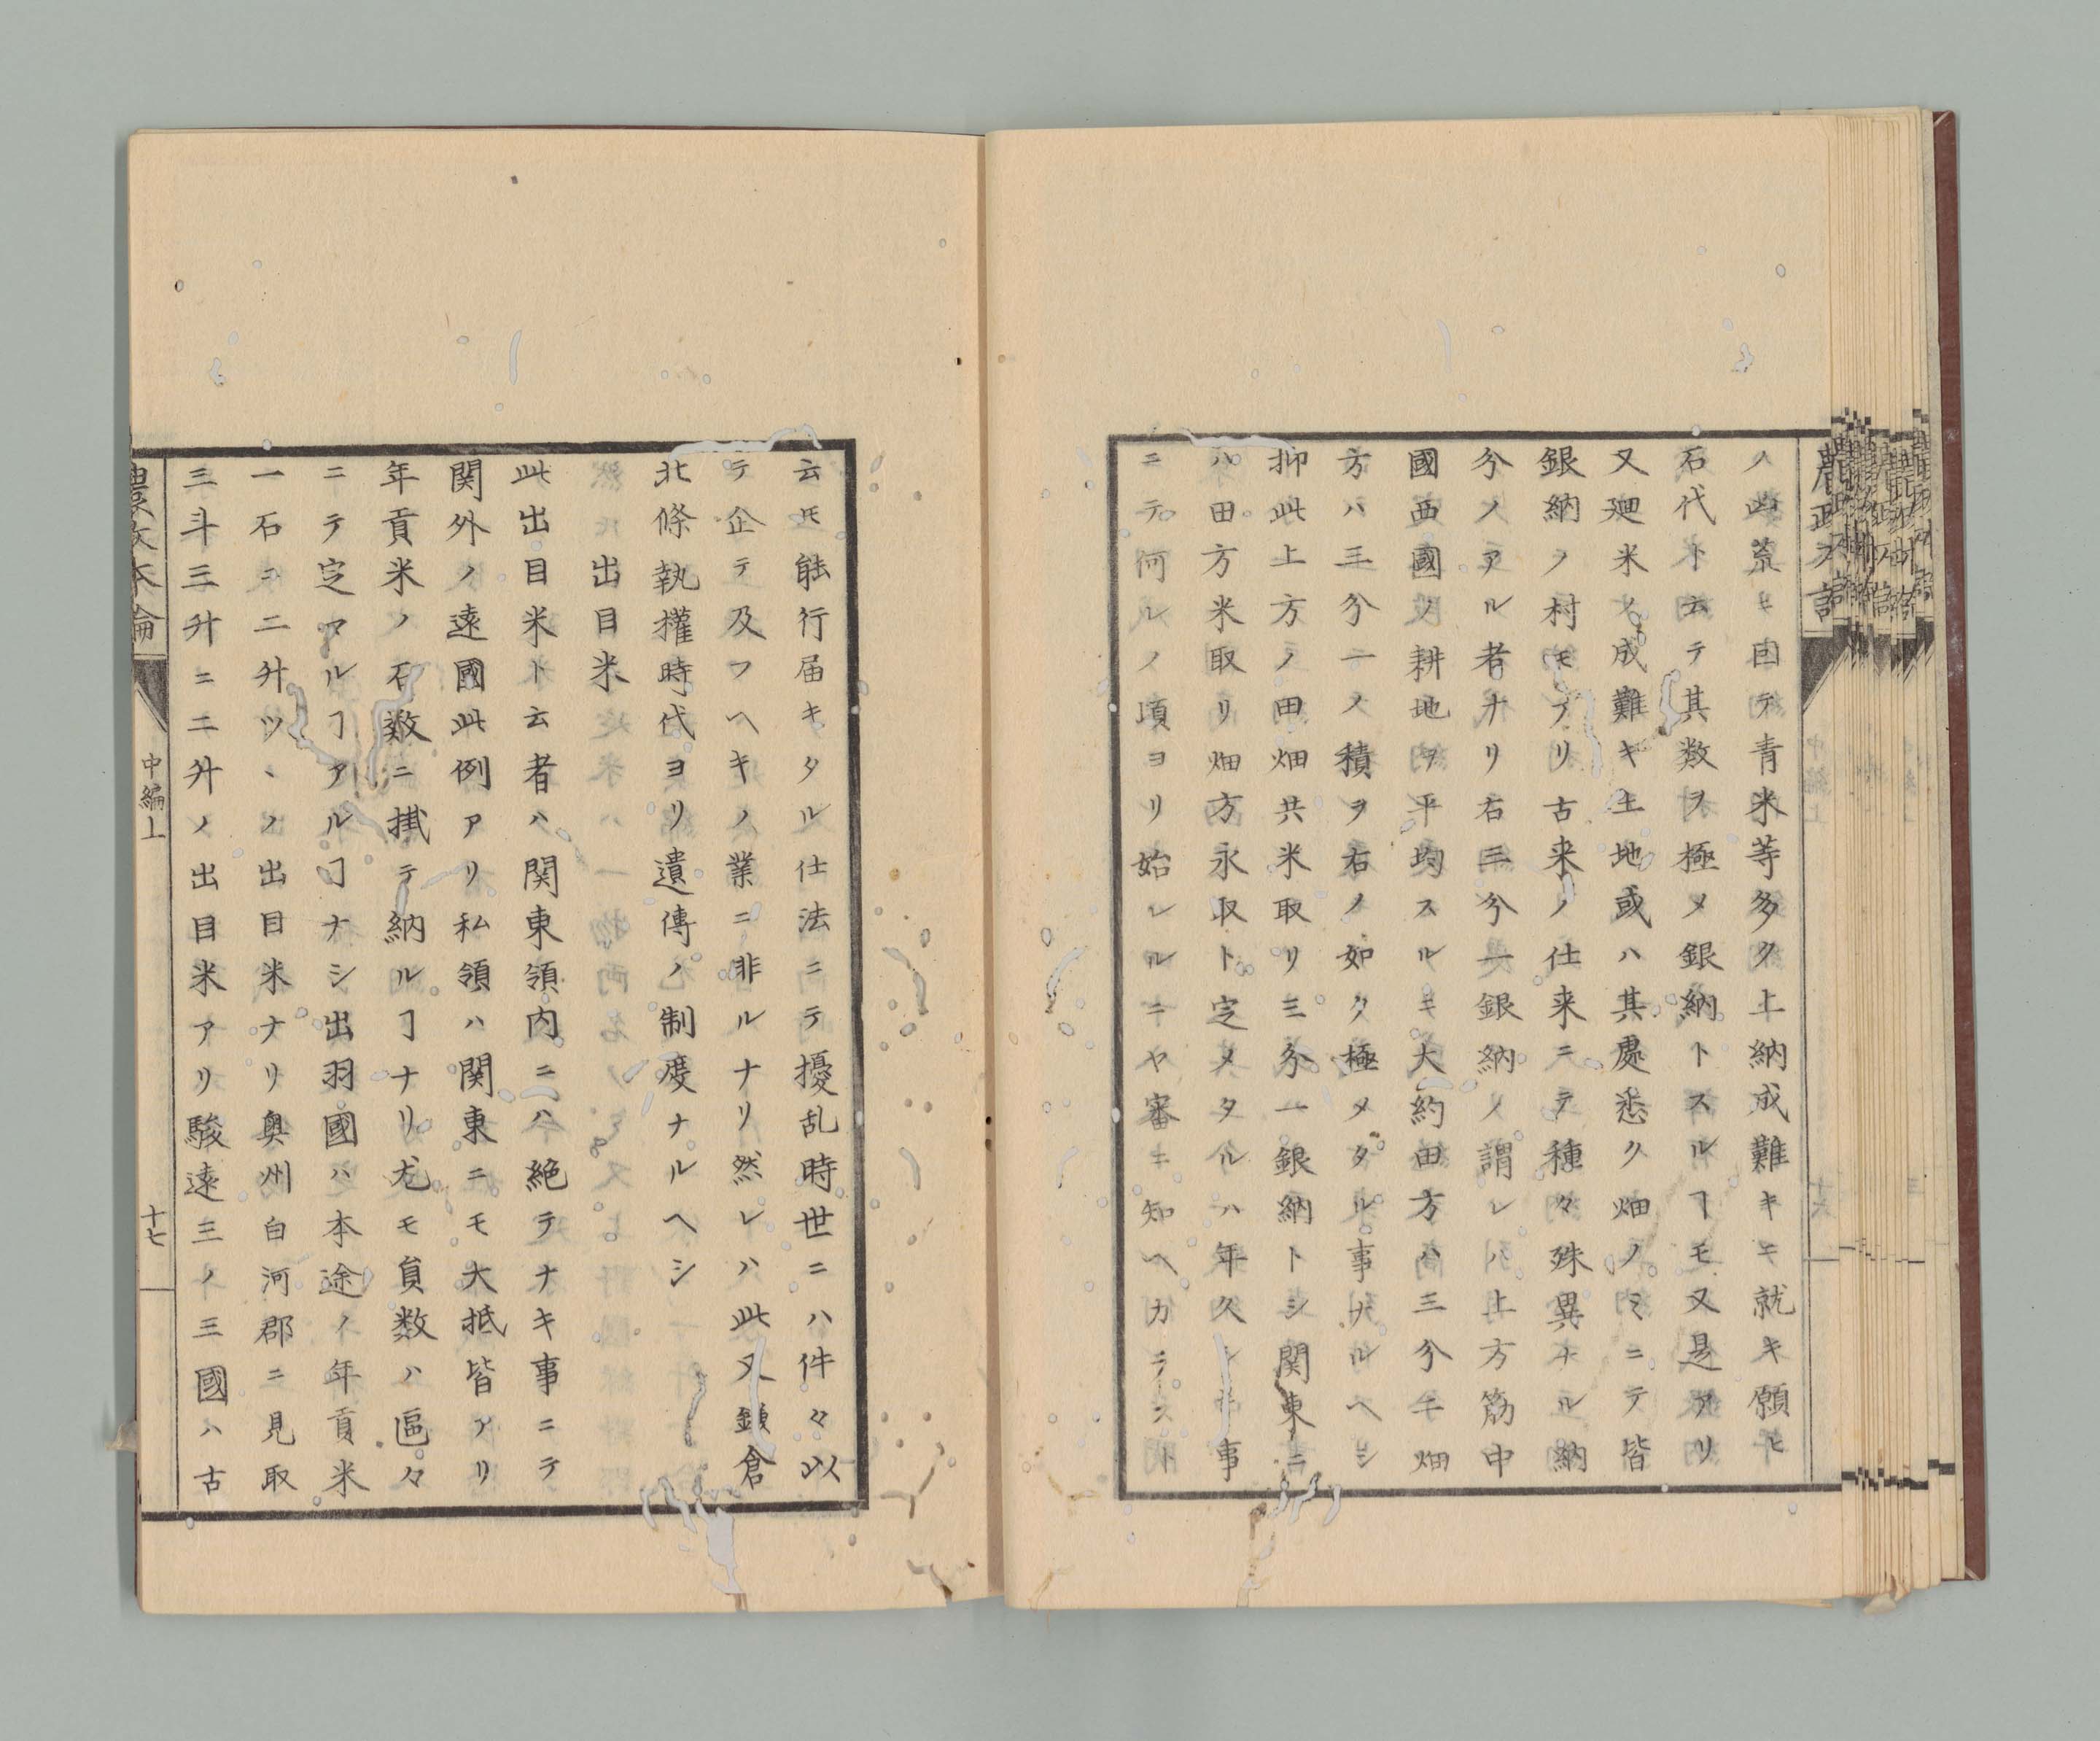 ノ凶荒ニ因テ青米等多ク上納成難キニ就キ願ヒ
石代ト云テ其数ヲ極メ銀納トスルヿモ又是アリ
又廻米ノ成難キ土地或ハ其處悉ク畑ノミニテ皆
銀納ノ村モアリ古来ノ仕来ニテ種々殊異ナル納
分ノアル者ナリ右三分一銀納ノ謂レハ上方筋中
國西國ノ耕地ヲ平均スルニ大約田方ハ三分ニ畑
方ハ三分一ノ積ヲ右ノ如ク極メタル事ナルヘシ
抑此上方ノ田畑共米取リ三分一銀納トシ関東ニ
ハ田方米取リ畑方永取ト定メタルハ年久シキ事
ニテ何ルノ頃ヨリ始レルニヤ審ニ知ヘカラスト
云モ能行届キタル仕法ニテ擾乱時世ニハ件々以
テ企テ及フヘキノ業ニ非ルナリ然レハ此又鎌倉
北條執權時代ヨリ遺傳ノ制度ナルヘシ
出目米
此出目米ト云者ハ関東領内ニハ絶テナキ事ニテ
関外ノ遠國此例アリ私領ハ関東ニモ大抵皆アリ
年貢米ノ石数ニ掛テ納ルヿナリ尤モ員数ハ區々
ニテ定マルヿアルヿナシ出羽國ハ本途ノ年貢米
一石ニ二升ツヽノ出目米ナリ奥州白河郡ニ見取
三斗三升ニ二升ノ出目米アリ駿遠三ノ三國ハ古
農政本論
中編上
十七